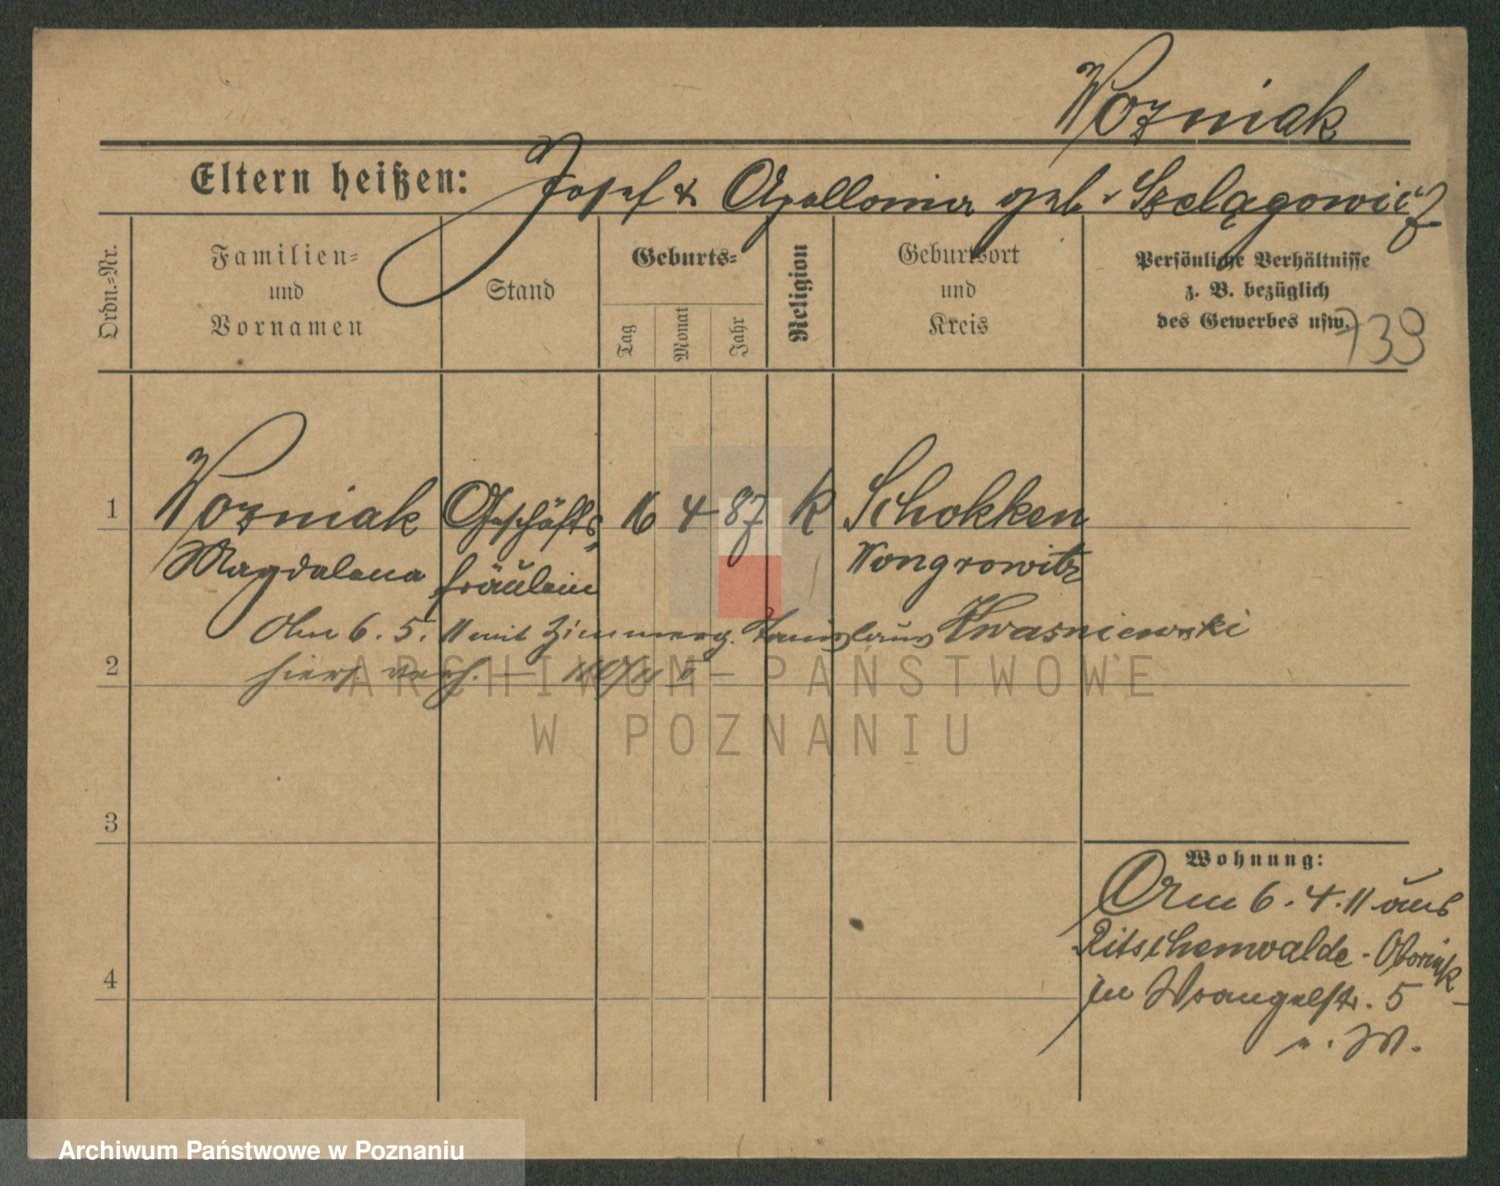 Wozniak
Eltern heißen: Josef & Apollonia geb. Szelągowicz
Ordn.-Nr.
Familien- und Vornamen
Stand
Geburts-
Tag
Monat
Jahr
Religion
Geburtsort und Kreis
Persönliche Verhältnisse
z. B. bezüglich
des Gewerbes usw.
739
1 Wozniak Geschäfts- 16 4 87 K Schokken
Magdalena fräulein Wongrowitz
Am 6. 5. 11 mit Zimmerg. Stanislaus Kwasniewski
2 hier verh. –
3
4
Wohnung:
Am 6. 4. 11 aus
Ritschenwalde - Obornik
in Wrangelstr. 5
ARCHIWUM PAŃSTWOWE
W POZNANIU
Archiwum Państwowe w Poznaniu